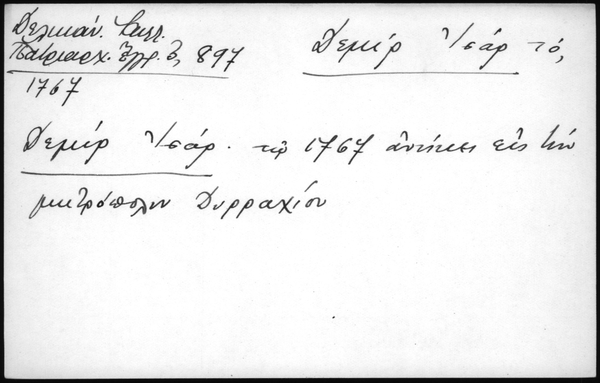 Δελικάν. Καλλ.
Πατριαρχ. Ἔγγρ. Γ, 897
1767
Δεμίρ Ἱσάρ τό,
Δεμίρ Ἱσάρ. τῷ 1767 ἀνῆκεν εἰς τὴν
μητρόπολιν Δυρραχίου